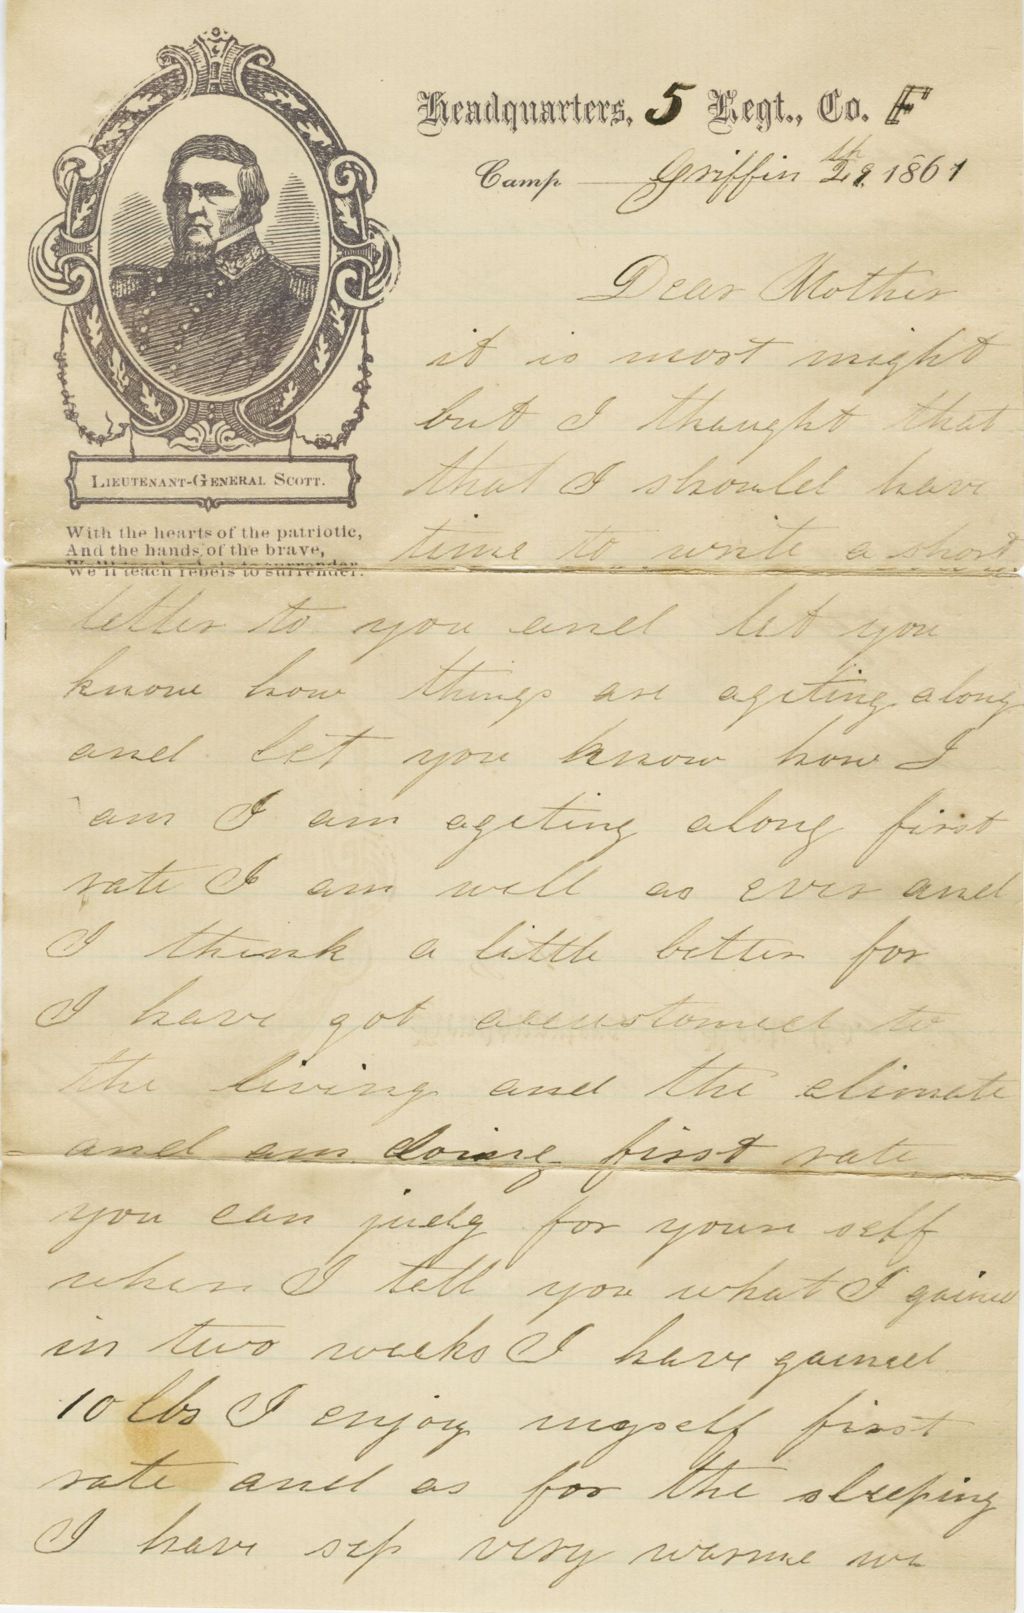 Headquarters, 5 Regt., Co. F
Camp Griffin 29th 1861
LIEUTENANT-GENERAL SCOTT.
With the hearts of the patriotic,
And the hands of the brave,
We'll teach rebels to surrender.
Dear Mother
it is most night
but I thaught that
that I should have
time to write a short
letter to you and let you
know how things are ageting along
and let you know how I
am I am ageting along first
rate I am well as ever and
I think a little better for
I have got accustomed to
the living and the climate
and am doing first rate
you can judg for youre self
when I tell you what I gained
in two weeks I have gained
10 lbs I enjoy myself first
rate and as for the sleeping
I have slep very warme we